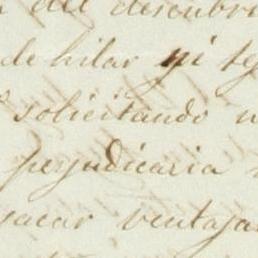 del descubri
de hilar ni te
solicitando
perjudicaria
sacar ventaja